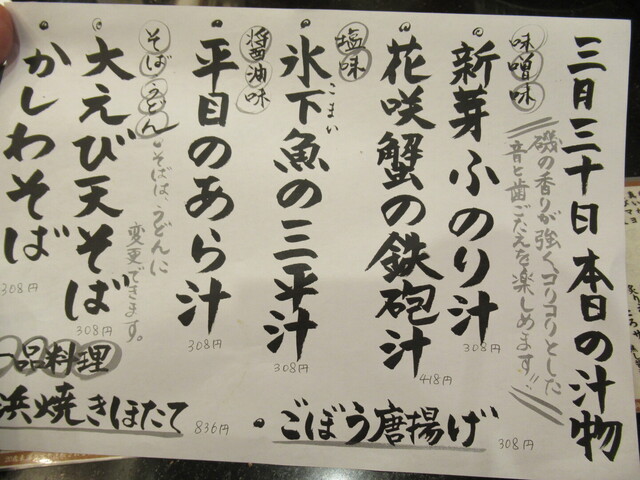 三月三十日 本日の汁物
味噌味
磯の香りが強く、コリコリとした
音と歯ごたえを楽しめます!!
・新芽ふのり汁
308円
・花咲蟹の鉄砲汁
418円
塩味
・氷下魚の三平汁
こまい
308円
醤油味
・平目のあら汁
308円
そば・うどん
・そばは、うどんに
変更できます。
・大えび天そば
308円
・かしわそば
308円
・ごぼう唐揚げ
308円
一品料理
浜焼きほたて
836円